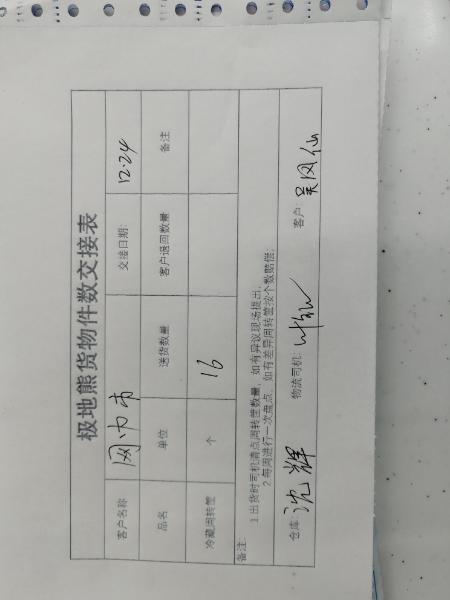 极地熊货物件数交接表
客户名称 网巾市 交接日期: 12.24
品名 单位 送货数量 客户退回数量 备注
冷藏周转筐 个 16
备注:
1.出货时司机清点周转筐数量,如有异议现场提出
2.每周进行一次盘点,如有差异周转筐按个数赔偿;
仓库: 沈辉 物流司机: 客户: 吴凤仙